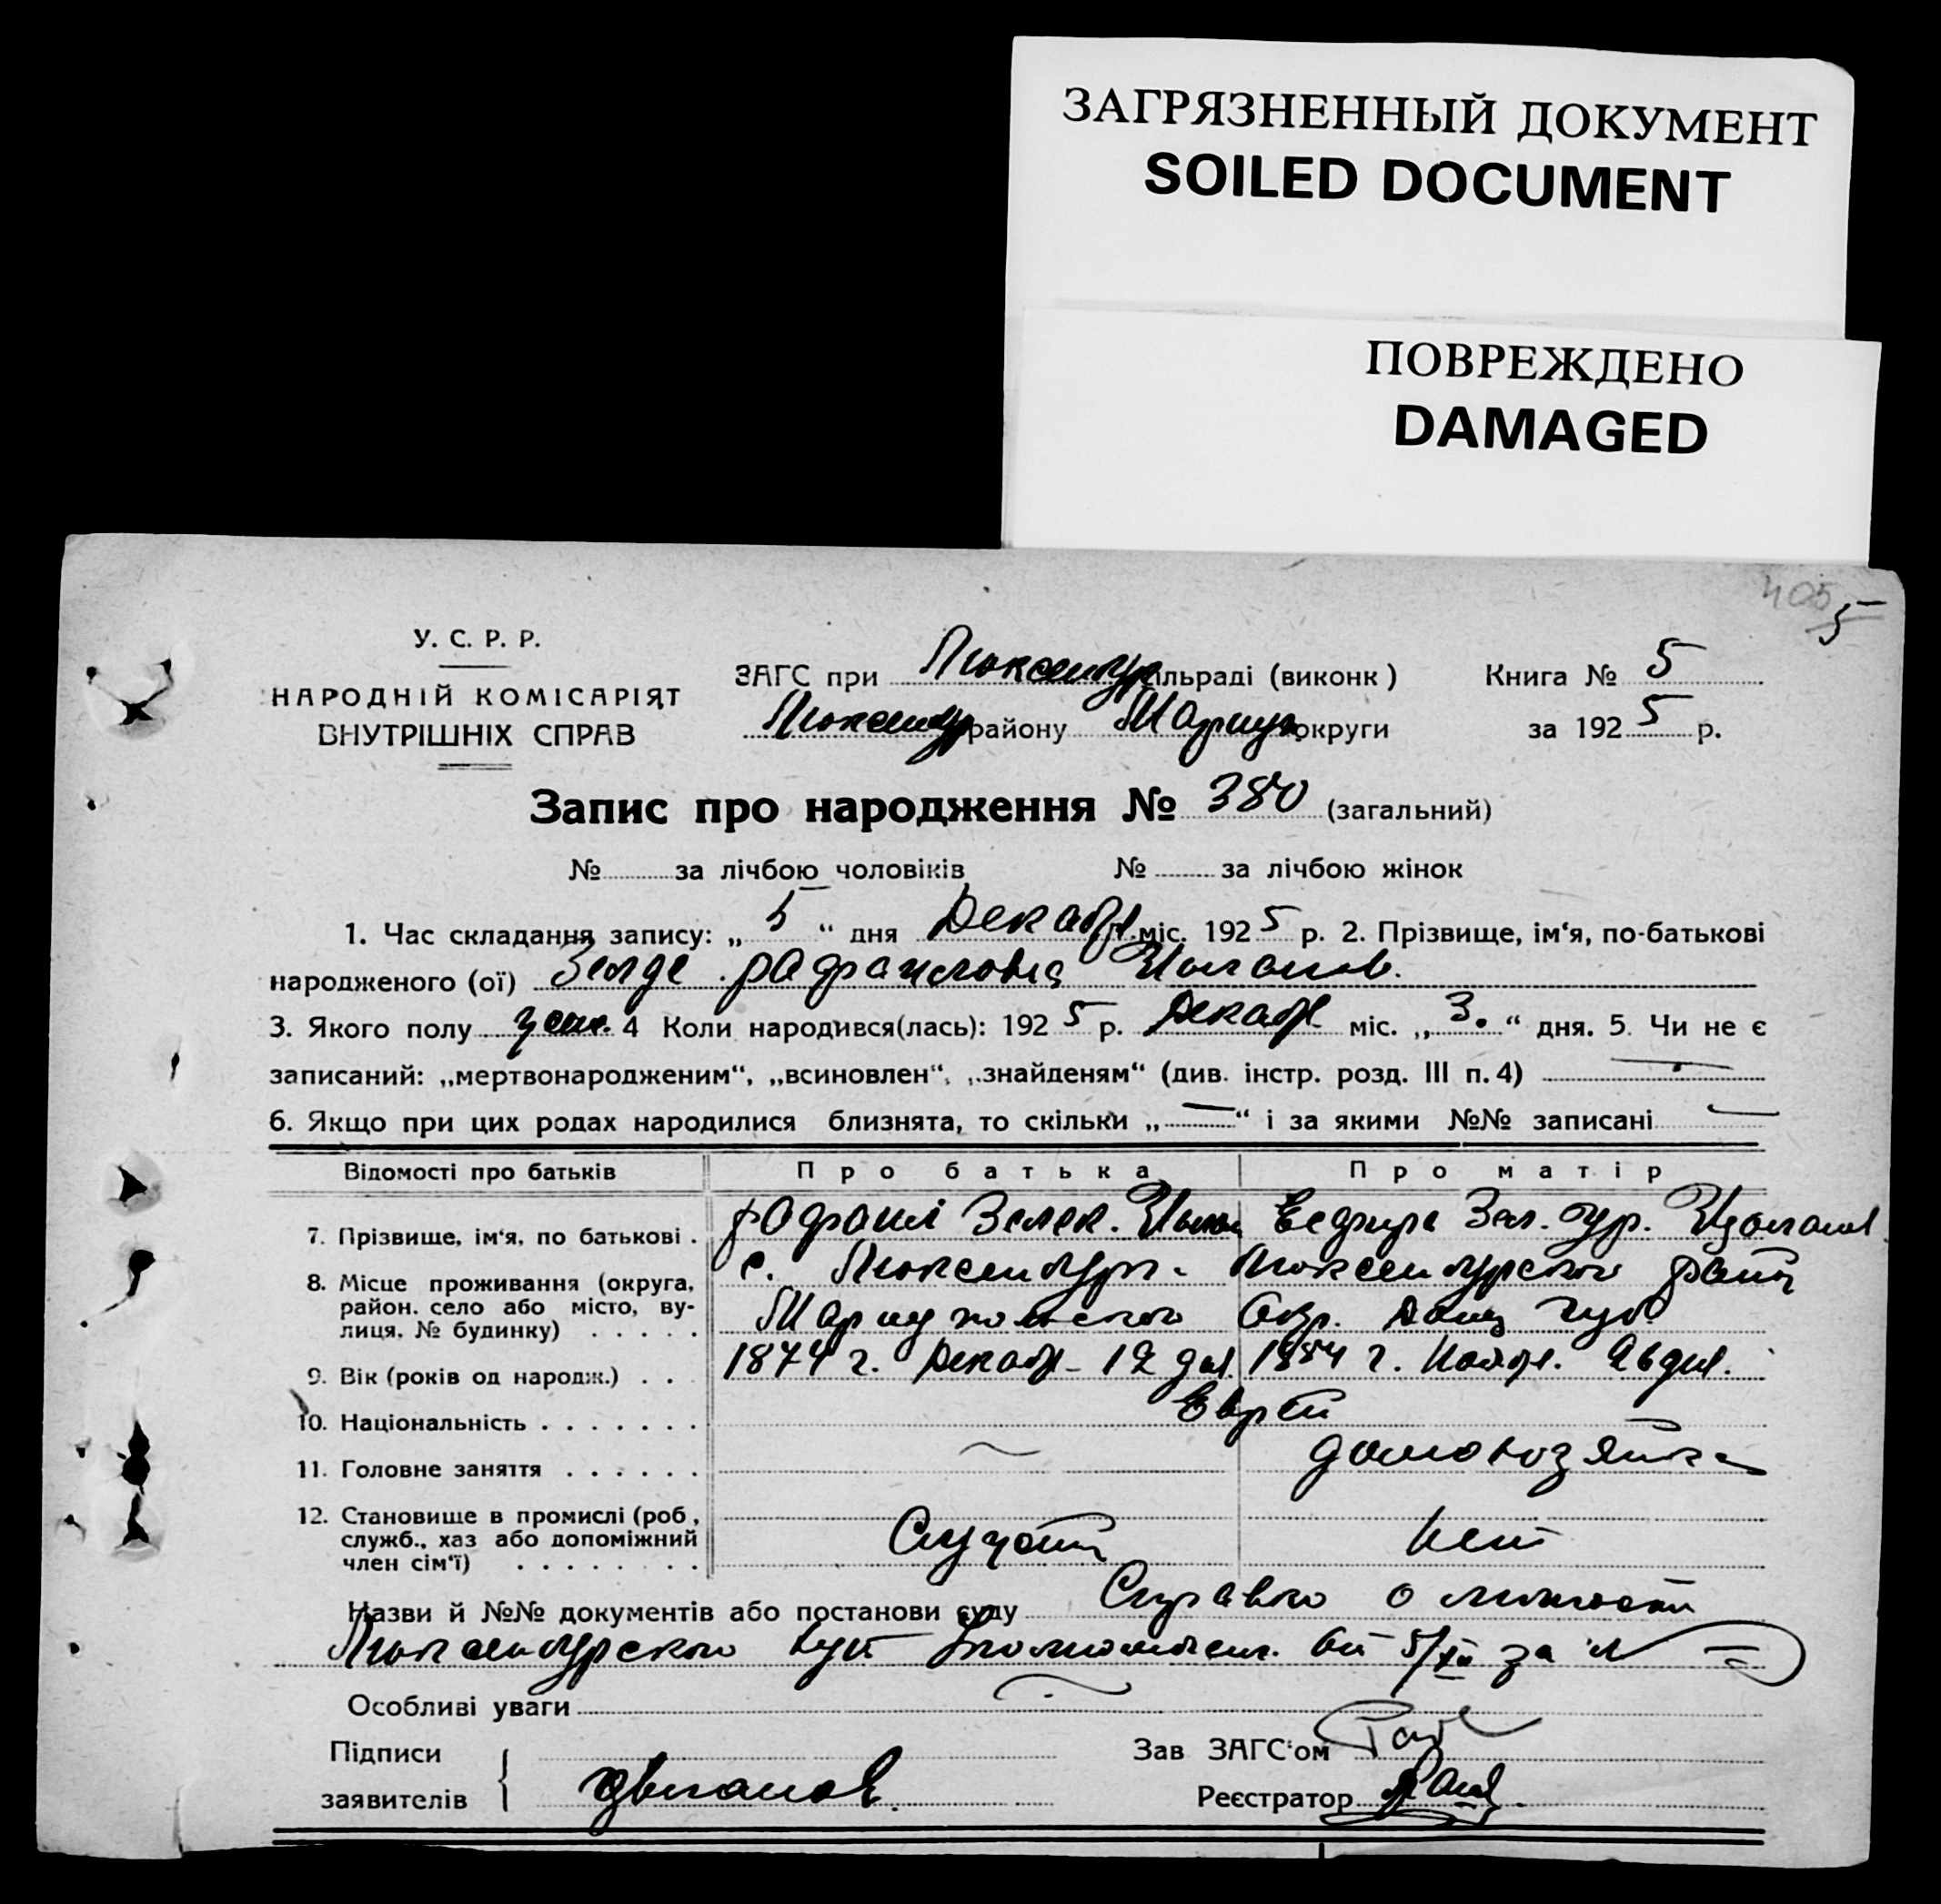 ЗАГРЯЗНЕННЫЙ ДОКУМЕНТ
SOILED DOCUMENT
ПОВРЕЖДЕНО
DAMAGED
405
5
У. С. Р. Р.
НАРОДНІЙ КОМІСАРІЯТ
ВНУТРІШНІХ СПРАВ
ЗАГС при Люксембур сільраді (виконк) Книга № 5
Люксембур району Мариуп округи за 1925 р.
Запис про народження № 380 (загальний)
№ за лічбою чоловіків № за лічбою жінок
1. Час складання запису: „ 5 “ дня Декабря міс. 1925 р. 2. Прізвище, ім‘я, по-батькові
народженого (ої) Зелде Рафаиловна
3. Якого полу жен. 4 Коли народився(лась): 1925 р. Декабр міс. „ 3. “ дня. 5. Чи не є
записаний: „мертвонародженим“, „всиновлен“, „знайденям“ (див. інстр. розд. III п. 4) —
6. Якщо при цих родах народилися близнята, то скільки „ — “ і за якими №№ записані —
Відомості про батьків Про батька Про матір
7. Прізвище, ім‘я, по батькові . Рафаил Зелек.
8. Місце проживання (округа, район. село або місто, вулиця, № будинку) . . . . . с. Люксембург. Люксембургского района
Мариупольского Окр. Донец губ.
9. Вік (років од народж.) . . 1874 г. Декабр 12 дня 1884 г. Ноябр. 26 дня.
10. Національність . . . . . . . Еврей
11. Головне заняття . . . . . . — домохозяйка
12. Становище в промислі (роб, служб., хаз або допоміжний член сім‘ї) . . . . . . . . Служащ Нет
Назви й №№ документів або постанови суду Справка о личности
Люксембургского от 5/XII за №
Особливі уваги —
Підписи
заявителів Цыганов.
Зав ЗАГС‘ом
Реєстратор